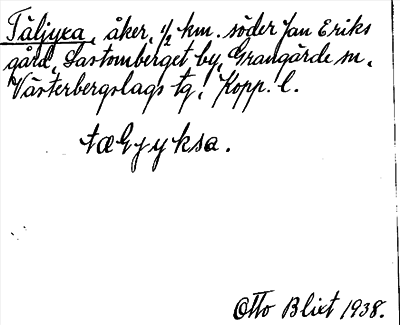 Täljyxa, åker, ½ km. söder Jan Eriks
gård, Sastomberget by, Grangärde sn,
Västerbergslags tg, Kopp. l.
tæljyksa.
Otto Blixt 1938.